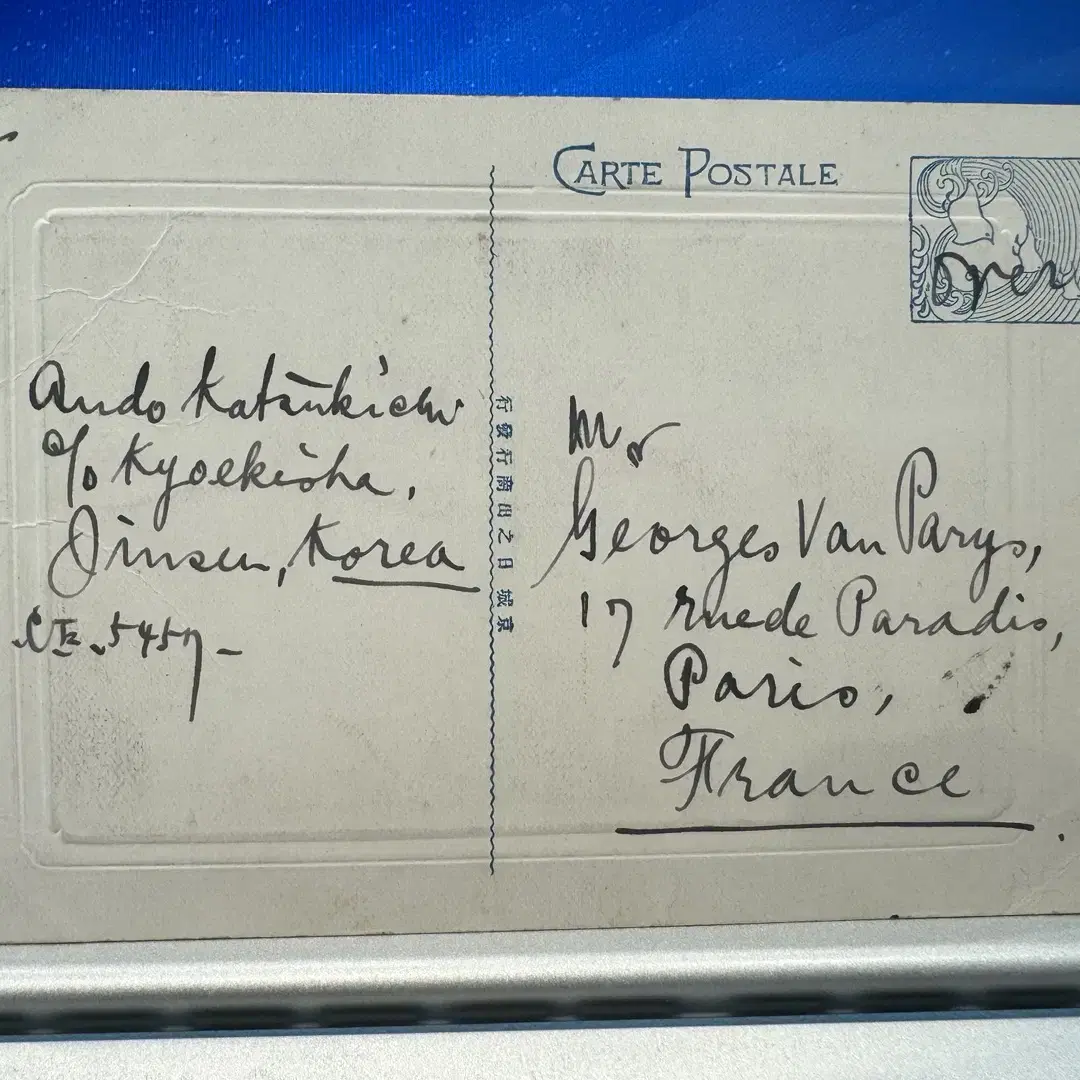 CARTE POSTALE
Over
Ando Katsukichi
c/o Kyoekisha,
Jinsen, Korea
5457-
行發行商出之日城京
Mr
Georges Van Parys,
17 rue de Paradis,
Paris,
France